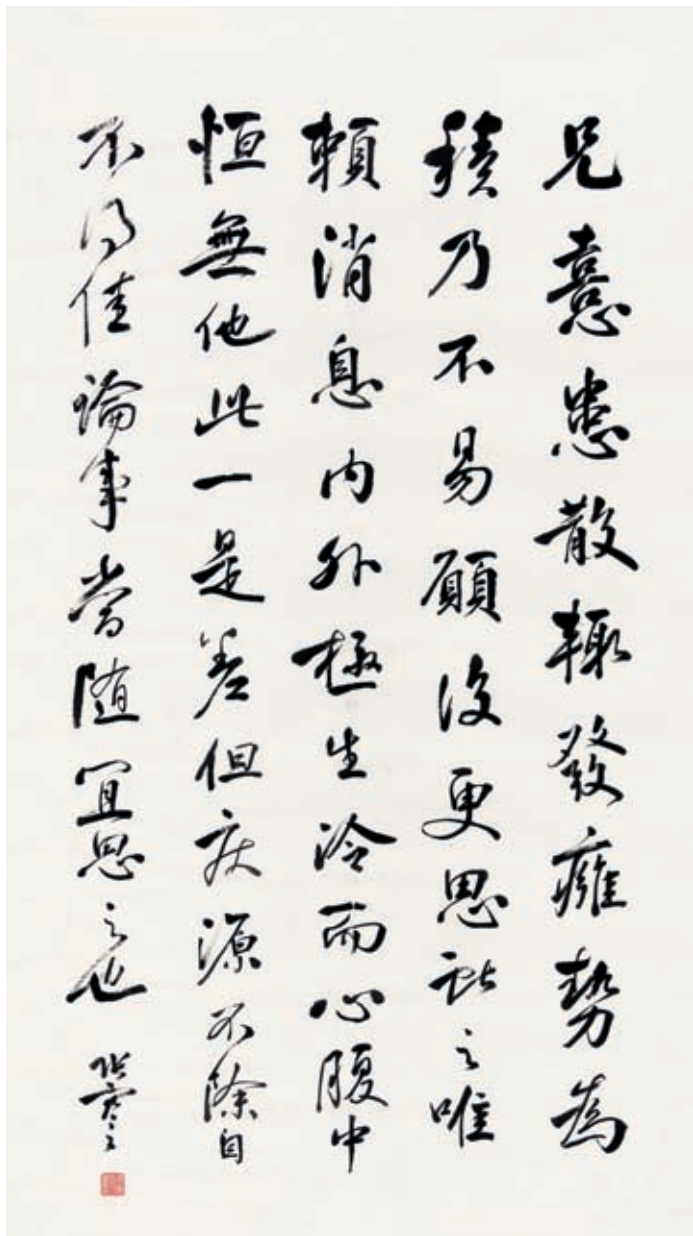 兄憙患散輒發癰勢為
積乃不易願復更思之唯
賴消息内外極生冷而心腹中
恒無他此一是差但疾源不除自
不得佳論事當随宜思之也